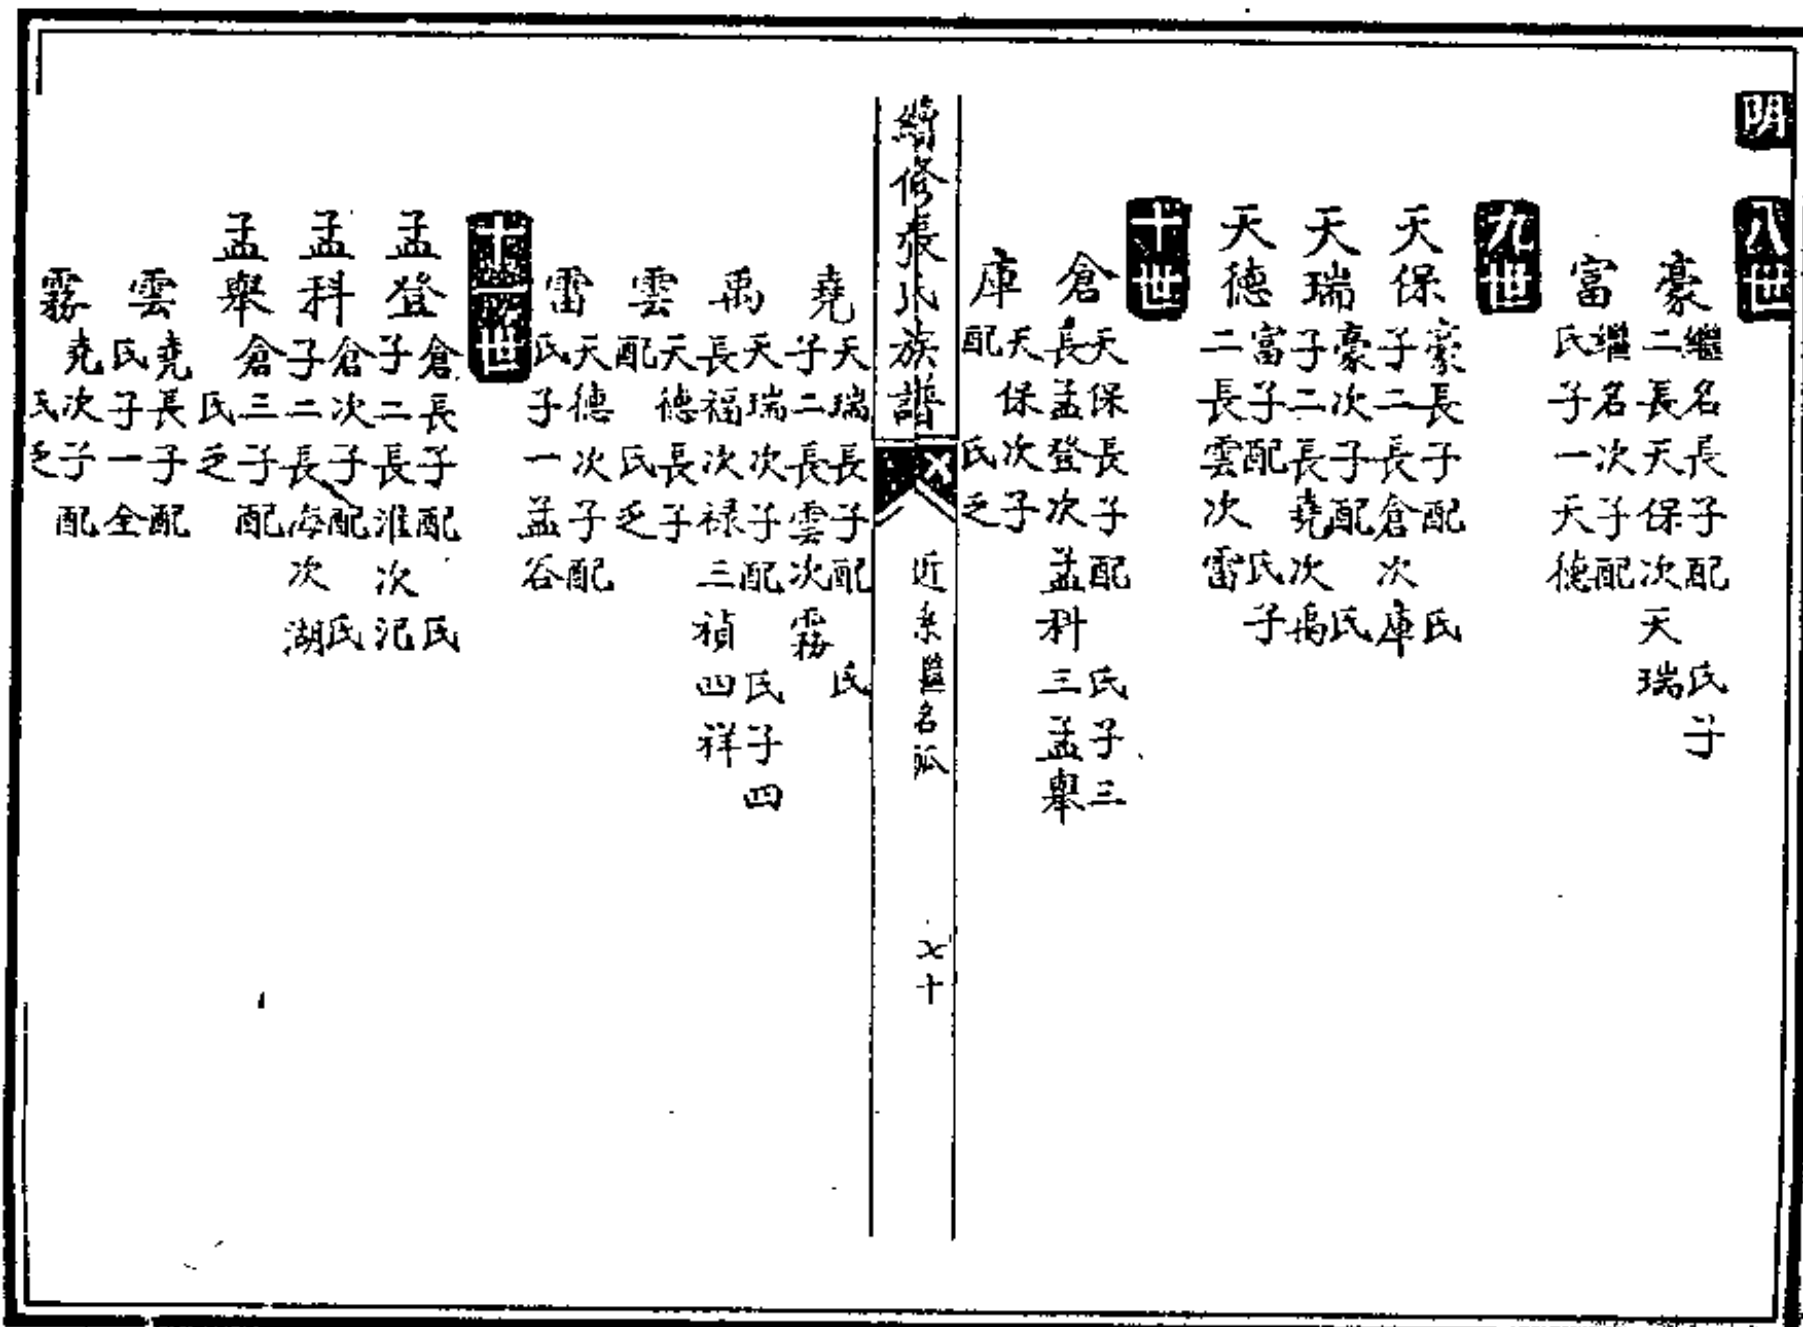 阴
八世
豪
繼名長子配 氏子
二長天保次天瑞
富
繼名次子配
氏子一天德
九世
天保
豪長子配 氏
子二長倉次庫
天瑞
豪次子配 氏
子二長堯次禹
天德
富子配 氏子
二長雲次雷
十世
倉
天保長子配 氏子三
長孟登次孟科三孟舉
庫
天保次子
配 氏乏
續修張氏族譜
近系 名派
七十
堯
天瑞長子配 氏
子二長雲次霧
禹
天瑞次子配 氏子四
長福次禄三禎四祥
雲
天德長子
配 氏乏
雷
天德次子配
氏子一孟谷
十一世
孟登
倉長子配 氏
子二長淮次汜
孟科
倉次子配 氏
子二長海次湖
孟舉
倉三子配
氏乏
雲
堯長子配
氏子一全
霧
堯次子配
氏乏